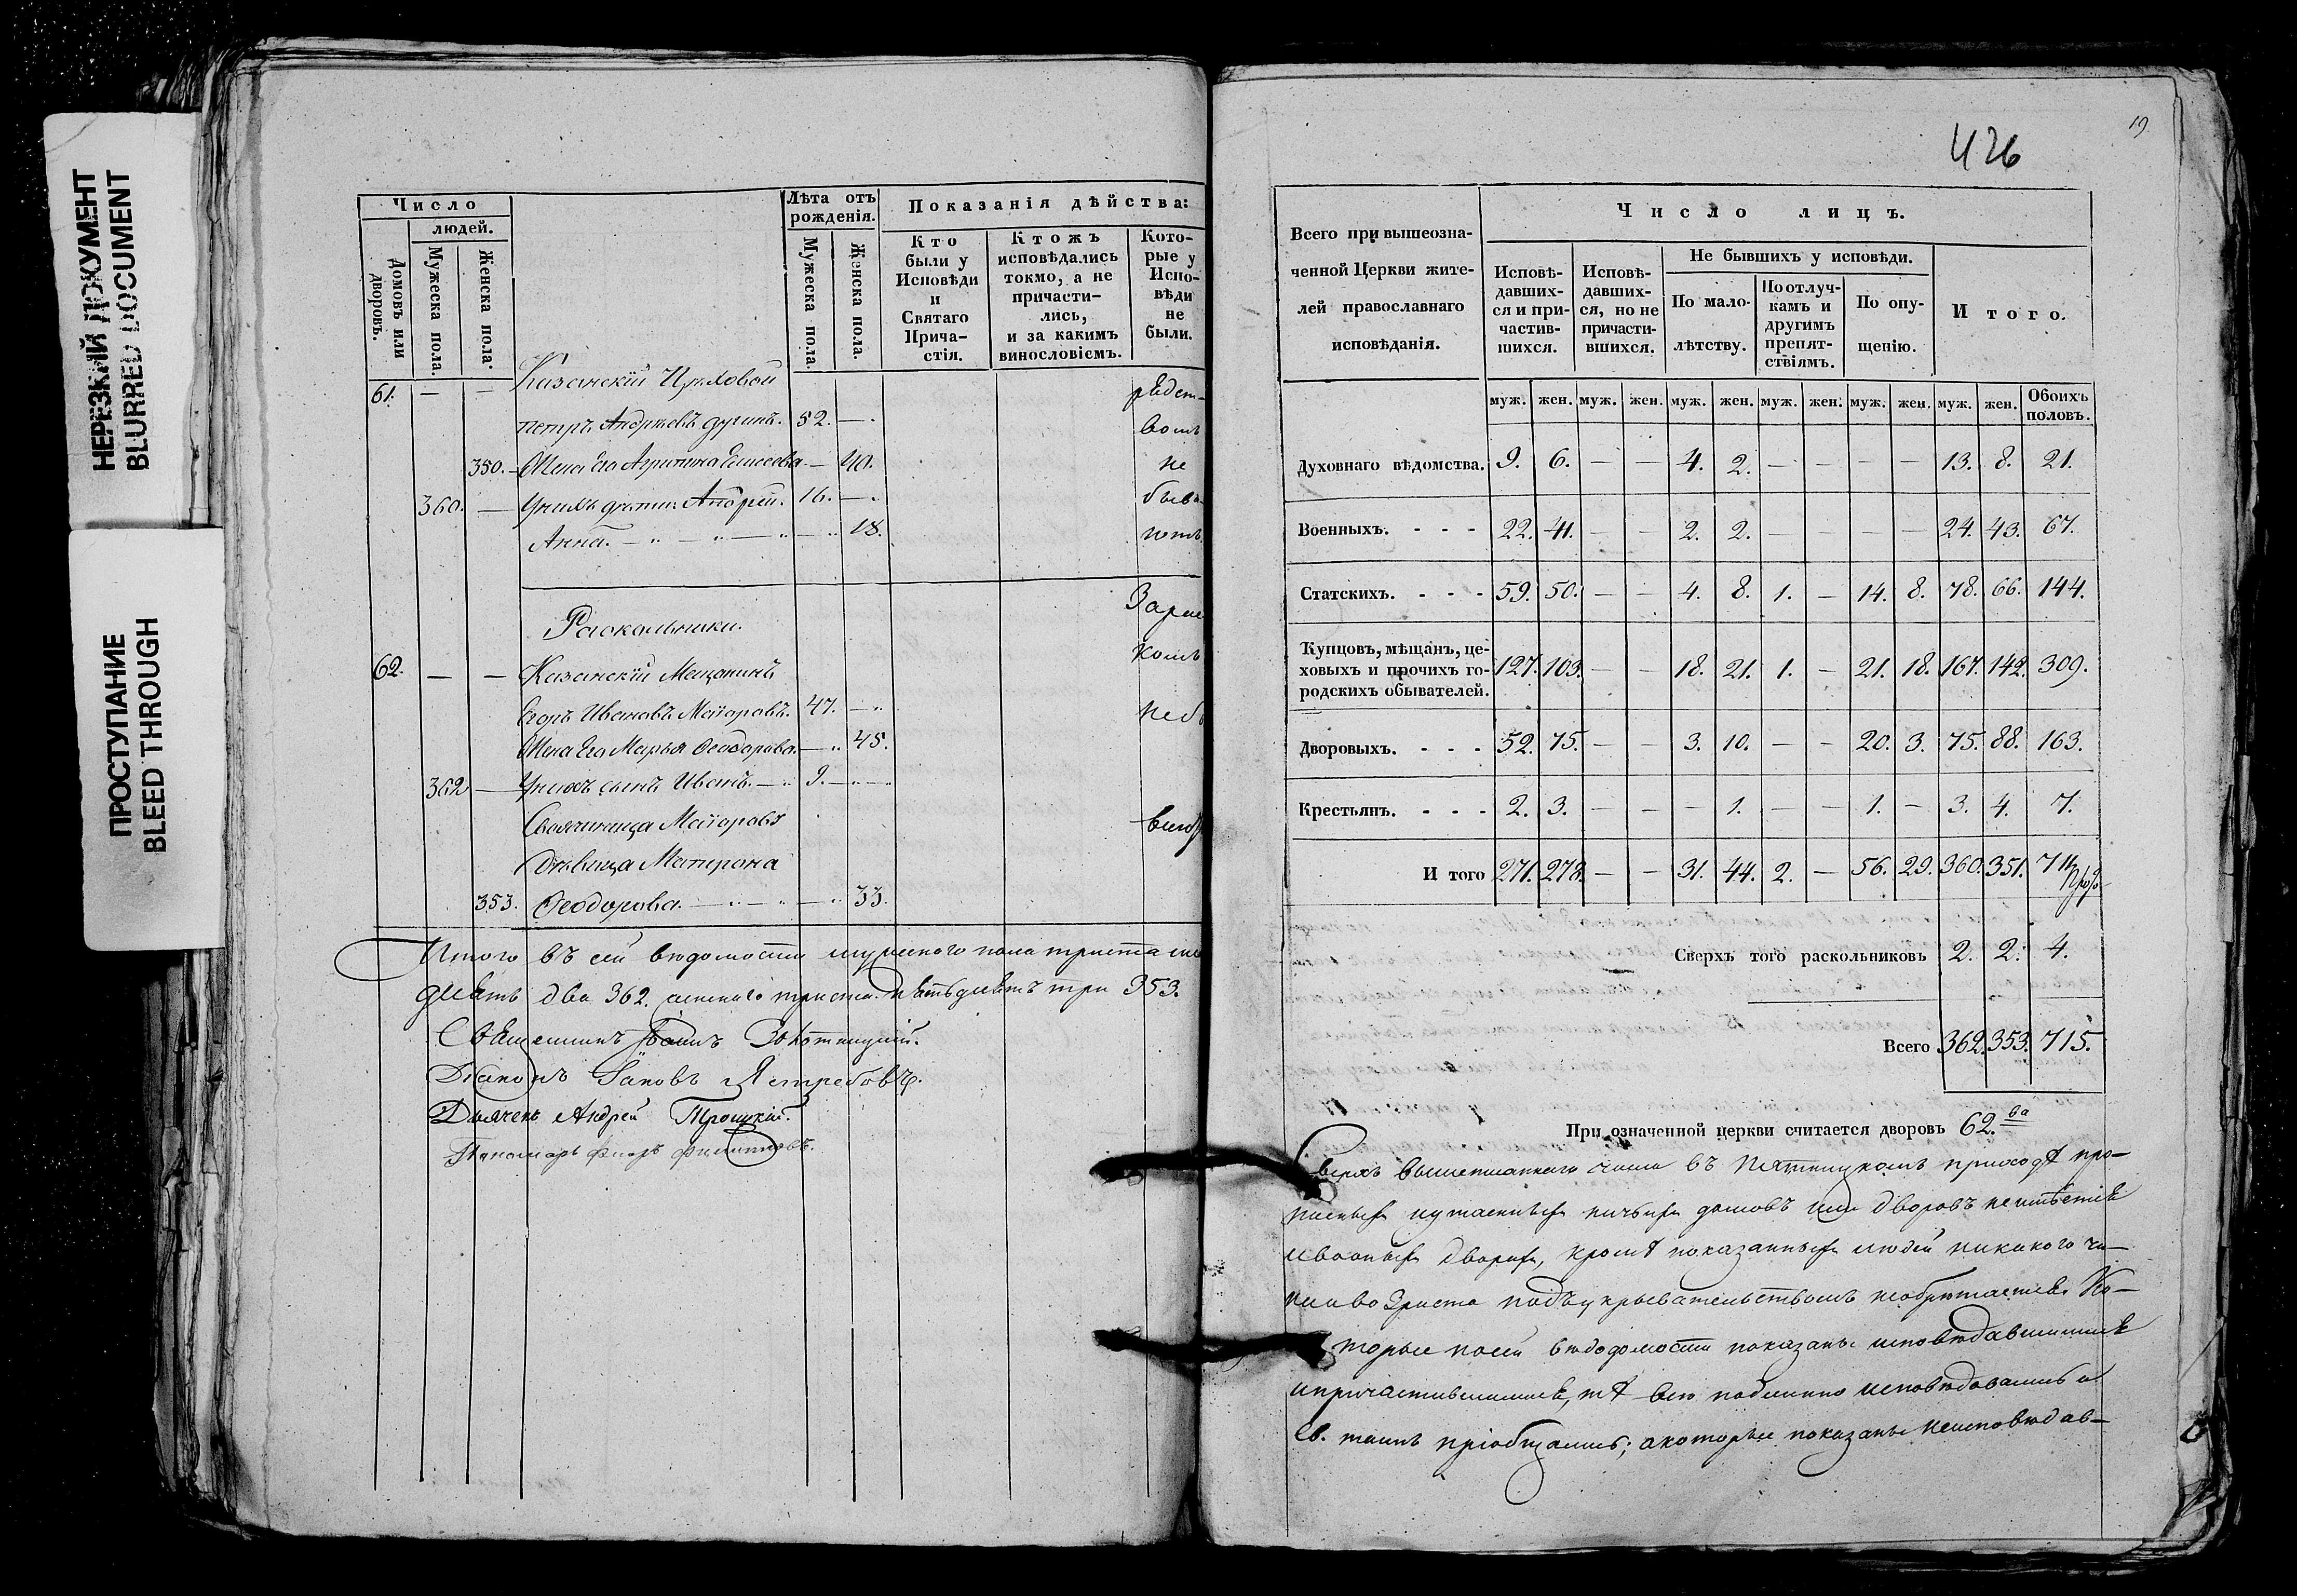 НЕРЕЗКИЙ ДОКУМЕНТ
BLURRED DOCUMENT
ПРОСТУПАНИЕ
BLEED THROUGH
Число
людей.
Домовъ или дворовъ.
Мужеска пола.
Женска пола.
Лѣта отъ рожденія.
Мужеска пола.
Женска пола.
Показанія дѣйства:
Кто были у Исповѣди и Святаго Прича-стія.
Ктожъ исповѣдались токмо, а не причасти-лись, и за какимъ винословіемъ.
Кото-рые у Испо-вѣди не были.
61. — — Казанскій Цѣховой
Петръ Андреевъ 52. —
350. Жена Его Агрипина Елисеева — 40. не
360. — У нихъ дѣти: Андрей. 16. —
Анна. — 18.
Раскольники.
62. — — Казанскій Мещанинъ
Егоръ Ивановъ Маіоровъ. 47. —
Жена Его Марья Феодорова — 45.
362 — У нихъ сынъ Иванъ. — 9. —
Свояченица Маіорова
Дѣвица Матрона
353. Феодорова. — 33.
Итого въ сей вѣдомости мужеского пола триста
два 362. женского триста пятьдесятъ три 353.
Священникъ Іоаннъ
Діаконъ Іаковъ Ястребовъ.
Дьячекъ Андрей Троицкій.
Пономарь
19.
426
Всего при вышеозна-
ченной Церкви жите-
лей православнаго
исповѣданія.
Число лицъ.
Исповѣ-давших-ся и при-частив-шихся.
Исповѣ-давших-ся, но не причасти-вшихся.
Не бывшихъ у исповѣди.
По мало-лѣтству.
По отлуч-камъ и другимъ препят-ствіямъ.
По опу-щенію.
Итого.
муж. жен. муж. жен. муж. жен. муж. жен. муж. жен. муж. жен. Обоихъ половъ.
Духовнаго вѣдомства. 9. 6. — — 4. 2. — — — — 13. 8. 21.
Военныхъ. - - - 22. 41. — — 2. 2. — — — — 24. 43. 67.
Статскихъ. - - - 59. 50. — — 4. 8. 1. — 14. 8. 78. 66. 144.
Купцовъ, мѣщанъ, це-
ховыхъ и прочихъ го- 127. 103. — — 18. 21. 1. — 21. 18. 167. 142. 309.
родскихъ обывателей.
Дворовыхъ. - - - 52. 75. — — 3. 10. — — 20. 3. 75. 88. 163.
Крестьянъ. - - - 2. 3. — — — 1. — — 1. — 3. 4. 7.
И того 271. 278. — — 31. 44. 2. — 56. 29. 360. 351. 711.
Сверхъ того раскольниковъ 2. 2. 4.
Всего 362. 353. 715.
При означенной церкви считается дворовъ 62.ва
Сверхъ вышеписаннаго числа въ Пятницкомъ приходѣ про-
писныхъ и утаенныхъ ничьихъ домовъ или дворовъ неимѣется
дворахъ, кромѣ показанныхъ людей никакого чи-
подъ укрывательствомъ необрѣтается. Ко-
торые по сей вѣдомости показаны исповѣдавшимися
и причастившимися, тѣ всѣ подлинно исповѣдовались и
Св. таинъ пріобщались; а которые показаны неисповѣдав-